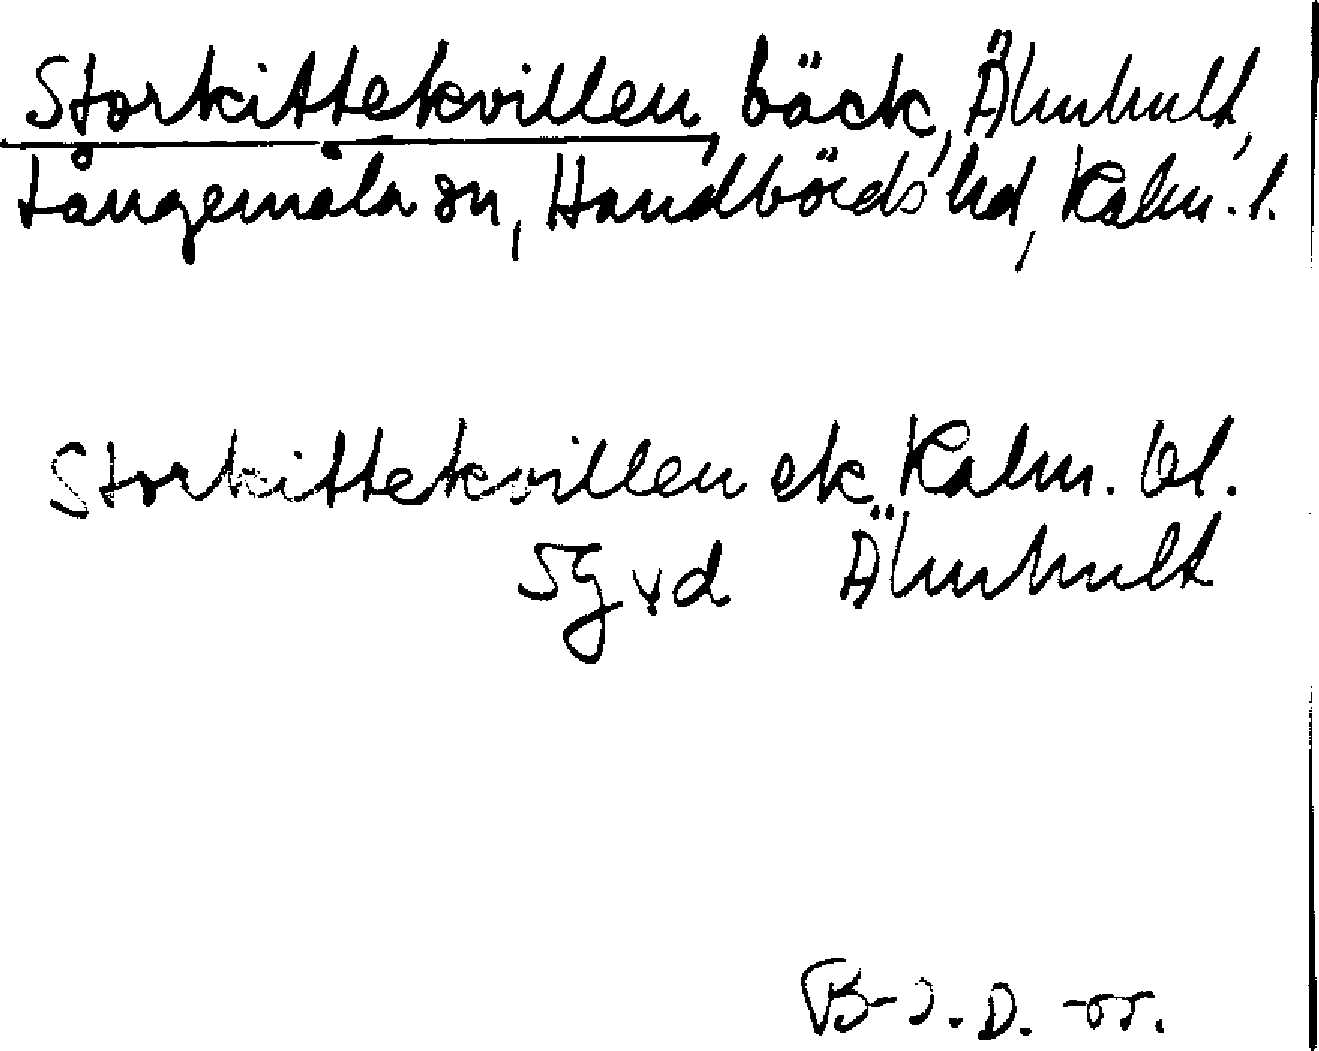 Storkittekvillen, bäck, Älmhult,
Långemåla sn, Handbörds hd, Kalm. l.
Storkittekvillen ek Kalm. bl.
5g vd Älmhult
B-J. D. -55.